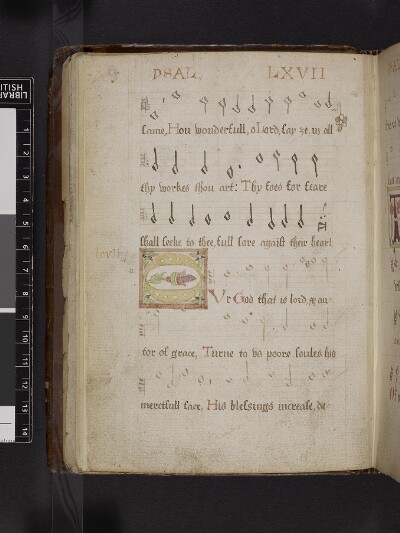 PSAL. LXVII
same, Hou wonderfull, o Lord, say ze, in all
thy workes thou art: Thy foes for feare
shall seeke to thee, full sore agaīst their heart
lxvij
Vr God that is lord, & au
tor of grace, Turne to vs poore soules his
mercifull face, His blessings increase, de-
LIBRAR
ITISH
1
2
3
4
5
6
7
8
9
10
11
12
13
14